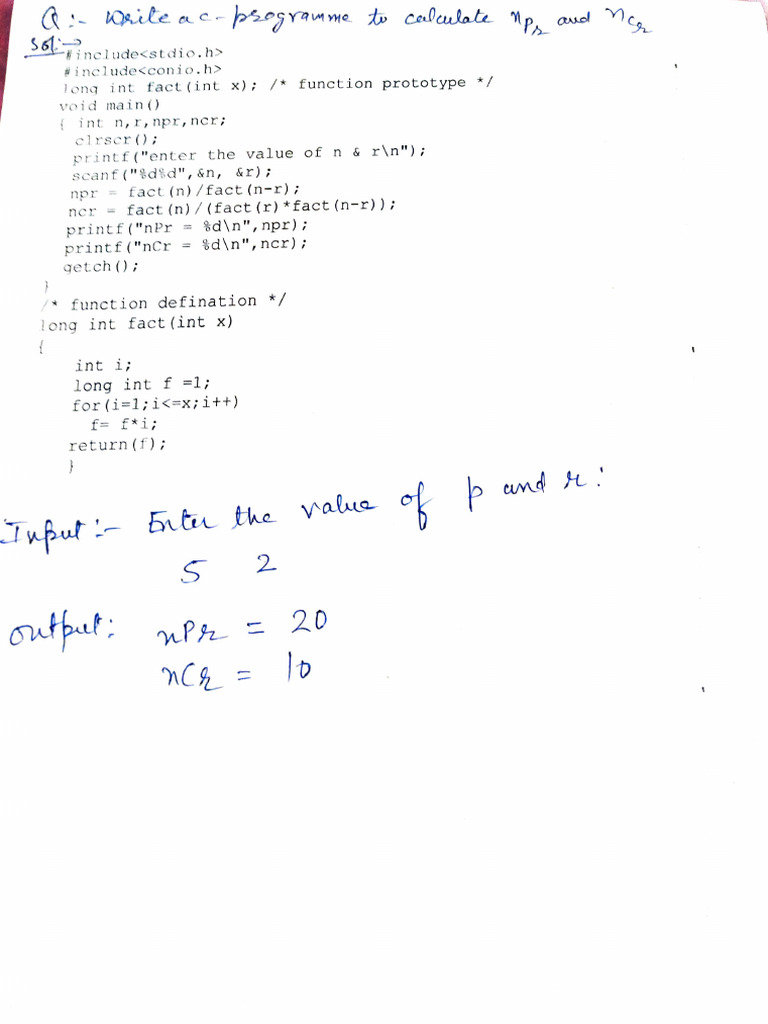 Q :- Write a c - programme to calculate nPr and nCr
Sol:->
#include<stdio.h>
#include<conio.h>
long int fact(int x); /* function prototype */
void main()
{ int n,r,npr,ncr;
clrscr();
printf("enter the value of n & r\n");
scanf("%d%d",&n, &r);
npr = fact(n)/fact(n-r);
ncr = fact(n)/(fact(r)*fact(n-r));
printf("nPr = %d\n",npr);
printf("nCr = %d\n",ncr);
getch();
}
/* function defination */
long int fact(int x)
{
int i;
long int f =1;
for(i=1;i<=x;i++)
f= f*i;
return(f);
}
Input :- Enter the value of p and r :
5 2
output: nPr = 20
nCr = 10